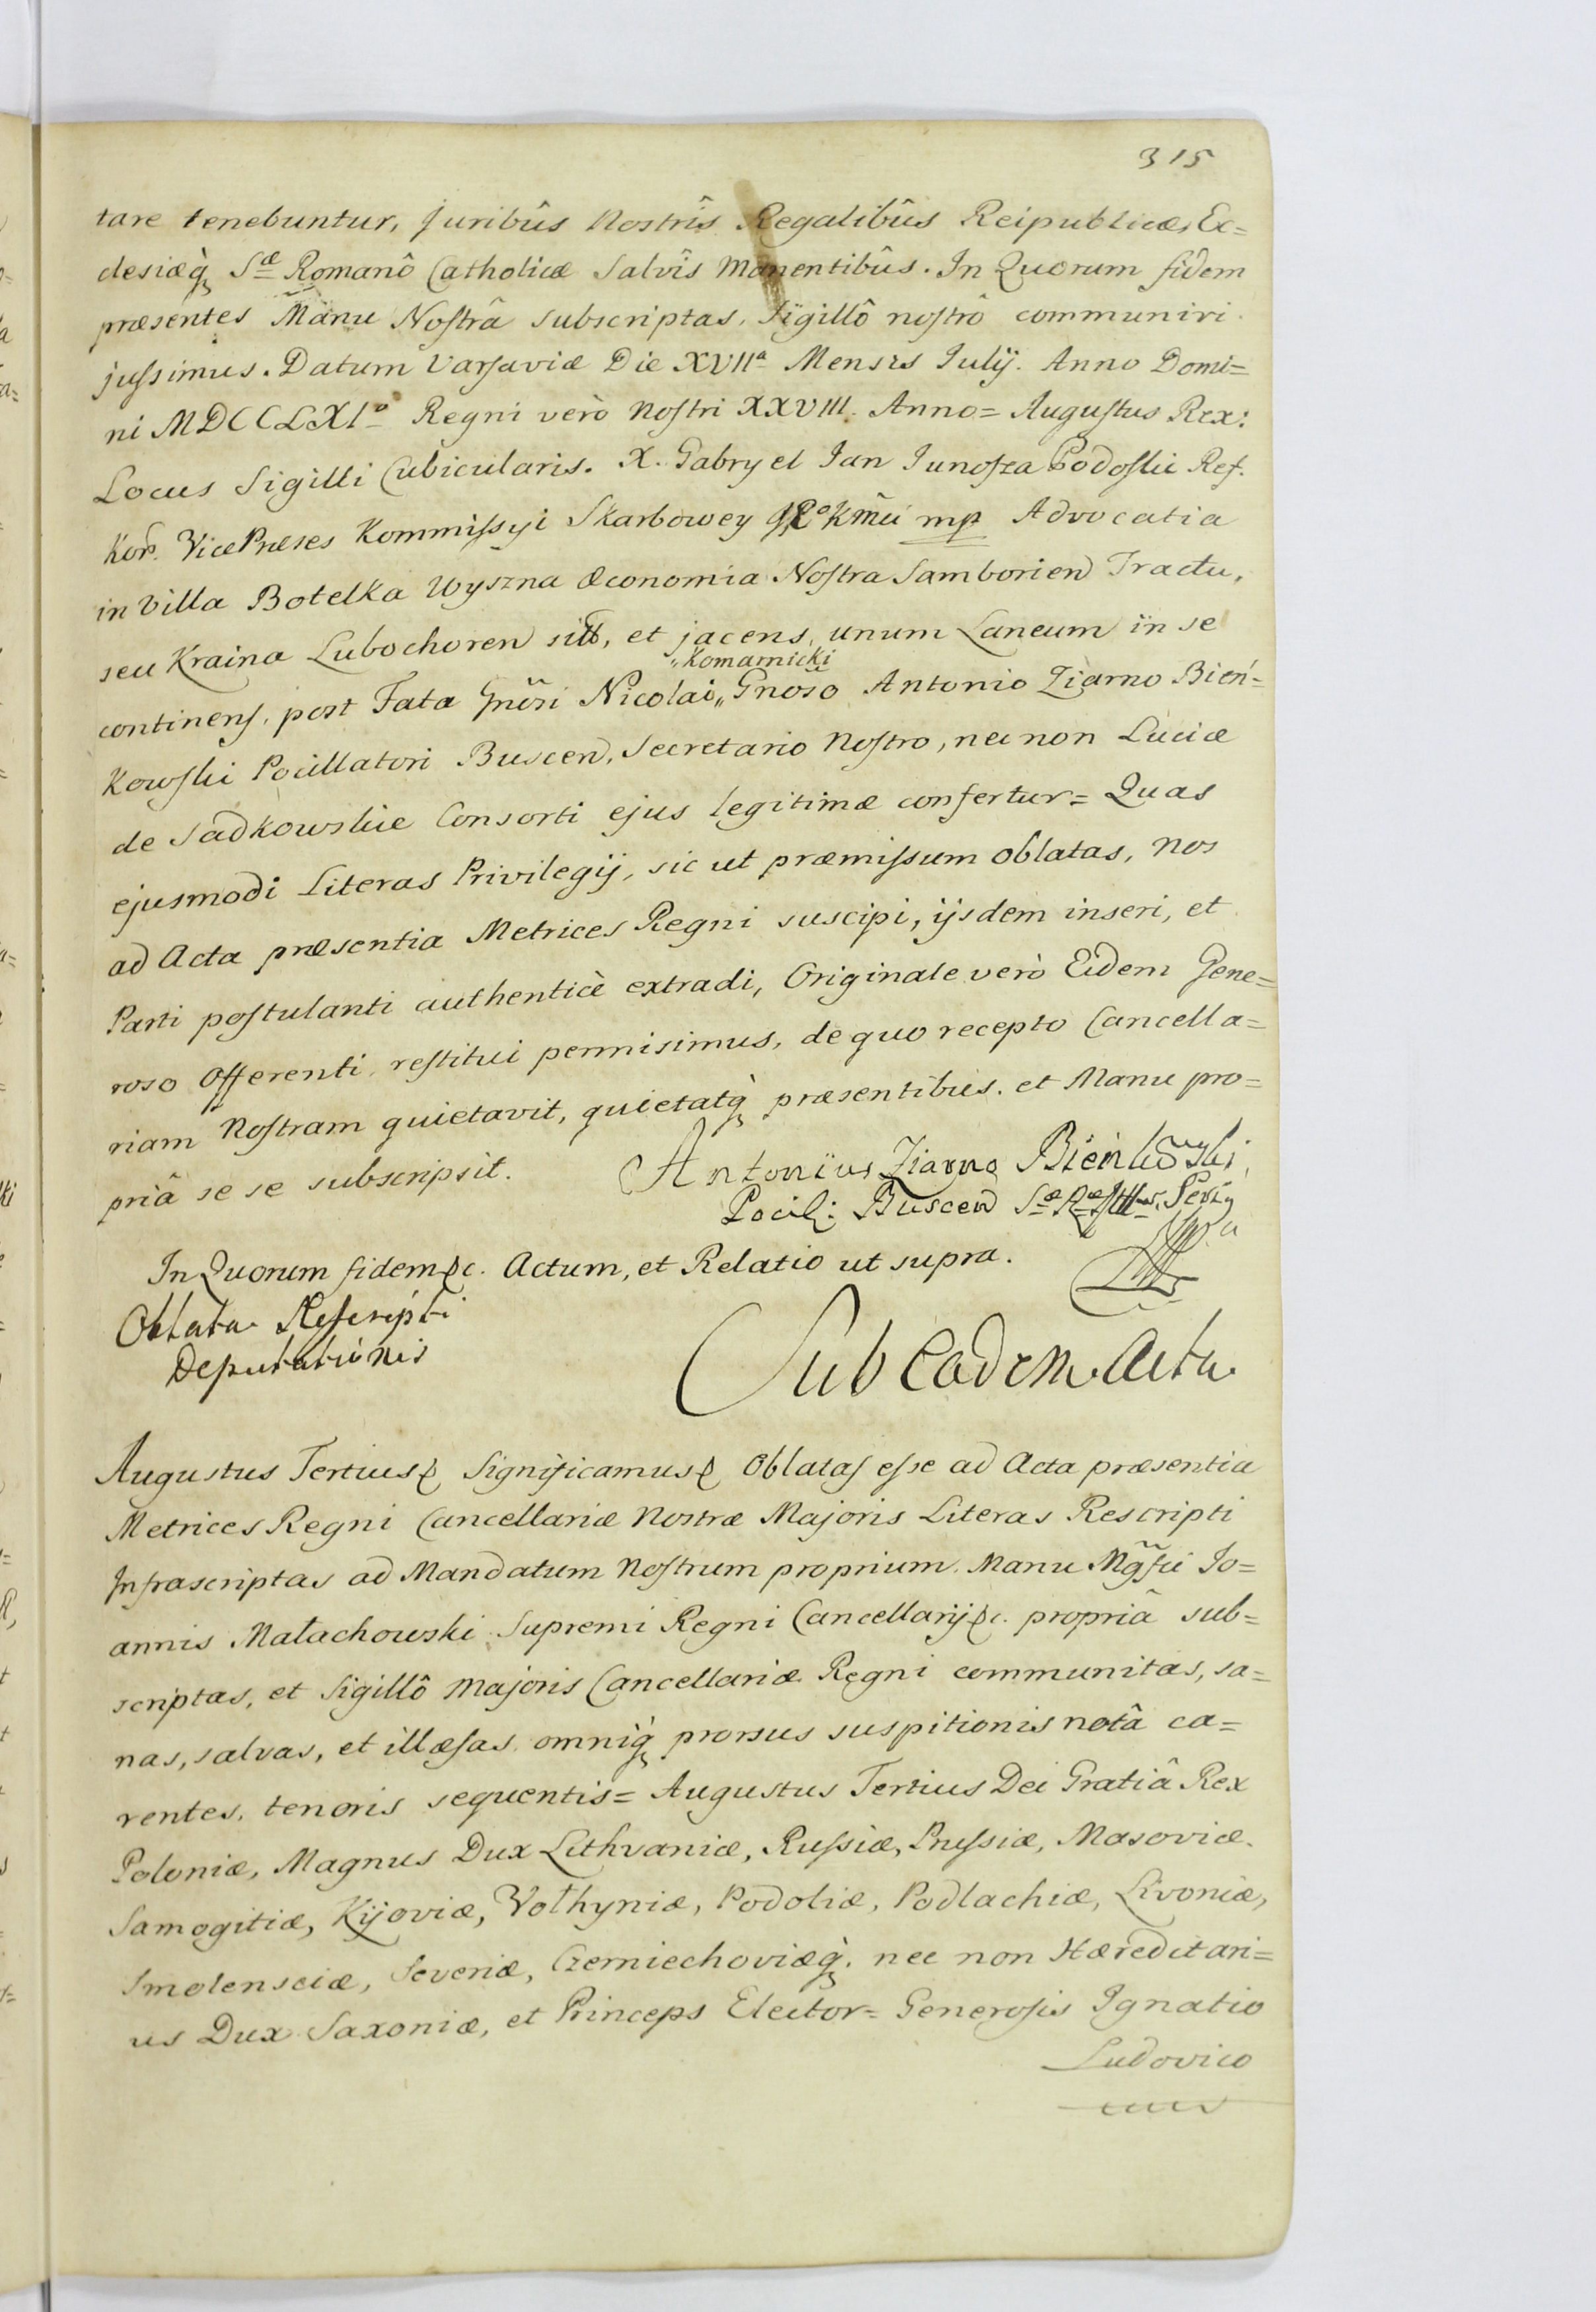 315
tare tenebuntur, Juribûs Nostrîs Regalibûs Reipublicæ, Ec=
clesiæq̀ Sæ Romanô Catholicæ Salvîs Manentibûs. In Quorum fidem
præsentes Manu Noſtrâ subscriptas, Sigillô noſtrô communiri
juſsimus. Datum Varſaviæ Die XVIIa Mensis Julÿ. Anno Domi=
ni MDCCLXIo Regni verò Noſtri XXVIII. Anno= Auguſtus Rex:
Locus Sigilli Cubicularis. X. Gabryel Jan Junoſza Podoſki Ref.
Kor. VicePræses Kommiſsyi Skarbowey mp Advocatia
in Villa Botelka Wyszna Œconomia Noſtra Samborien Tractu,
seu Kraina Lubochoren sita, et jacens, unum Laneum in se
"Komarnicki
continenſ, post Fata Gnosi Nicolai,, Gnoso Antonio Ziarno Bień=
Kowſki Pocillatori Buscen, Secretario Noſtro, nec non Luciæ
de Sadkowskie Consorti ejus legitimæ confertur= Quas
ejusmodi Literas Privilegÿ, sic ut præmiſsum oblatas, Nos
ad Acta præsentia Metrices Regni suscipi, ÿsdem inseri, et
Parti poſtulanti authenticè extradi, Originale verò Eidem Gene=
roso Offerenti, reſtitui permisimus, de quo recepto Cancella=
riam Noſtram quietavit, quietatq̀ præsentibus, et Manu pro=
priâ se se subscripsit.
Antonius Ziarno Bieńkowski
Pocil: Buscen Sæ Ræ Mttis Secr
In Quorum fidem &c. Actum, et Relatio ut supra.
Oblata Reſcripti
Deputationis
Sub Eadem Actu
Augustus Tertius& Significamus& Oblataſ eſse ad Acta præsentia
Metrices Regni Cancellariæ Nostræ Majoris Literas Rescripti
Infrascriptas ad Mandatum Noſtrum proprium, Manu Mgſci Jo=
annis Małachowski Supremi Regni Cancellarÿ &c. propriâ sub=
scriptas, et Sigillô Majoris Cancellariæ Regni communitas, sa=
nas, salvas, et illæſas, omniq̀ prorsus suspitionis notâ ca=
rentes, tenoris sequentis= Augustus Tertius Dei Gratiâ Rex
Poloniæ, Magnus Dux Lithvaniæ, Ruſsiæ, Pruſsiæ, Masoviæ.
Samogitiæ, Kijoviæ, Volhyniæ, Podoliæ, Podlachiæ, Livoniæ,
Smolensciæ, Severiæ, Czerniechoviæq̀, nec non Hæreditari=
us Dux Saxoniæ, et Princeps Elector= Generoſis Ignatio
Ludovico